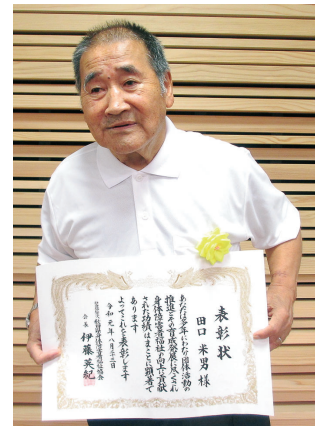 表彰状
田口 米男 様
あなたは多年にわたり団体活動の
推進とその育成発展に尽くされ
身体障害者福祉の向上に貢献
された功績はまことに顕著で
あります
よってこれを表彰します
令和元年八月二十三日
会長 伊藤英紀